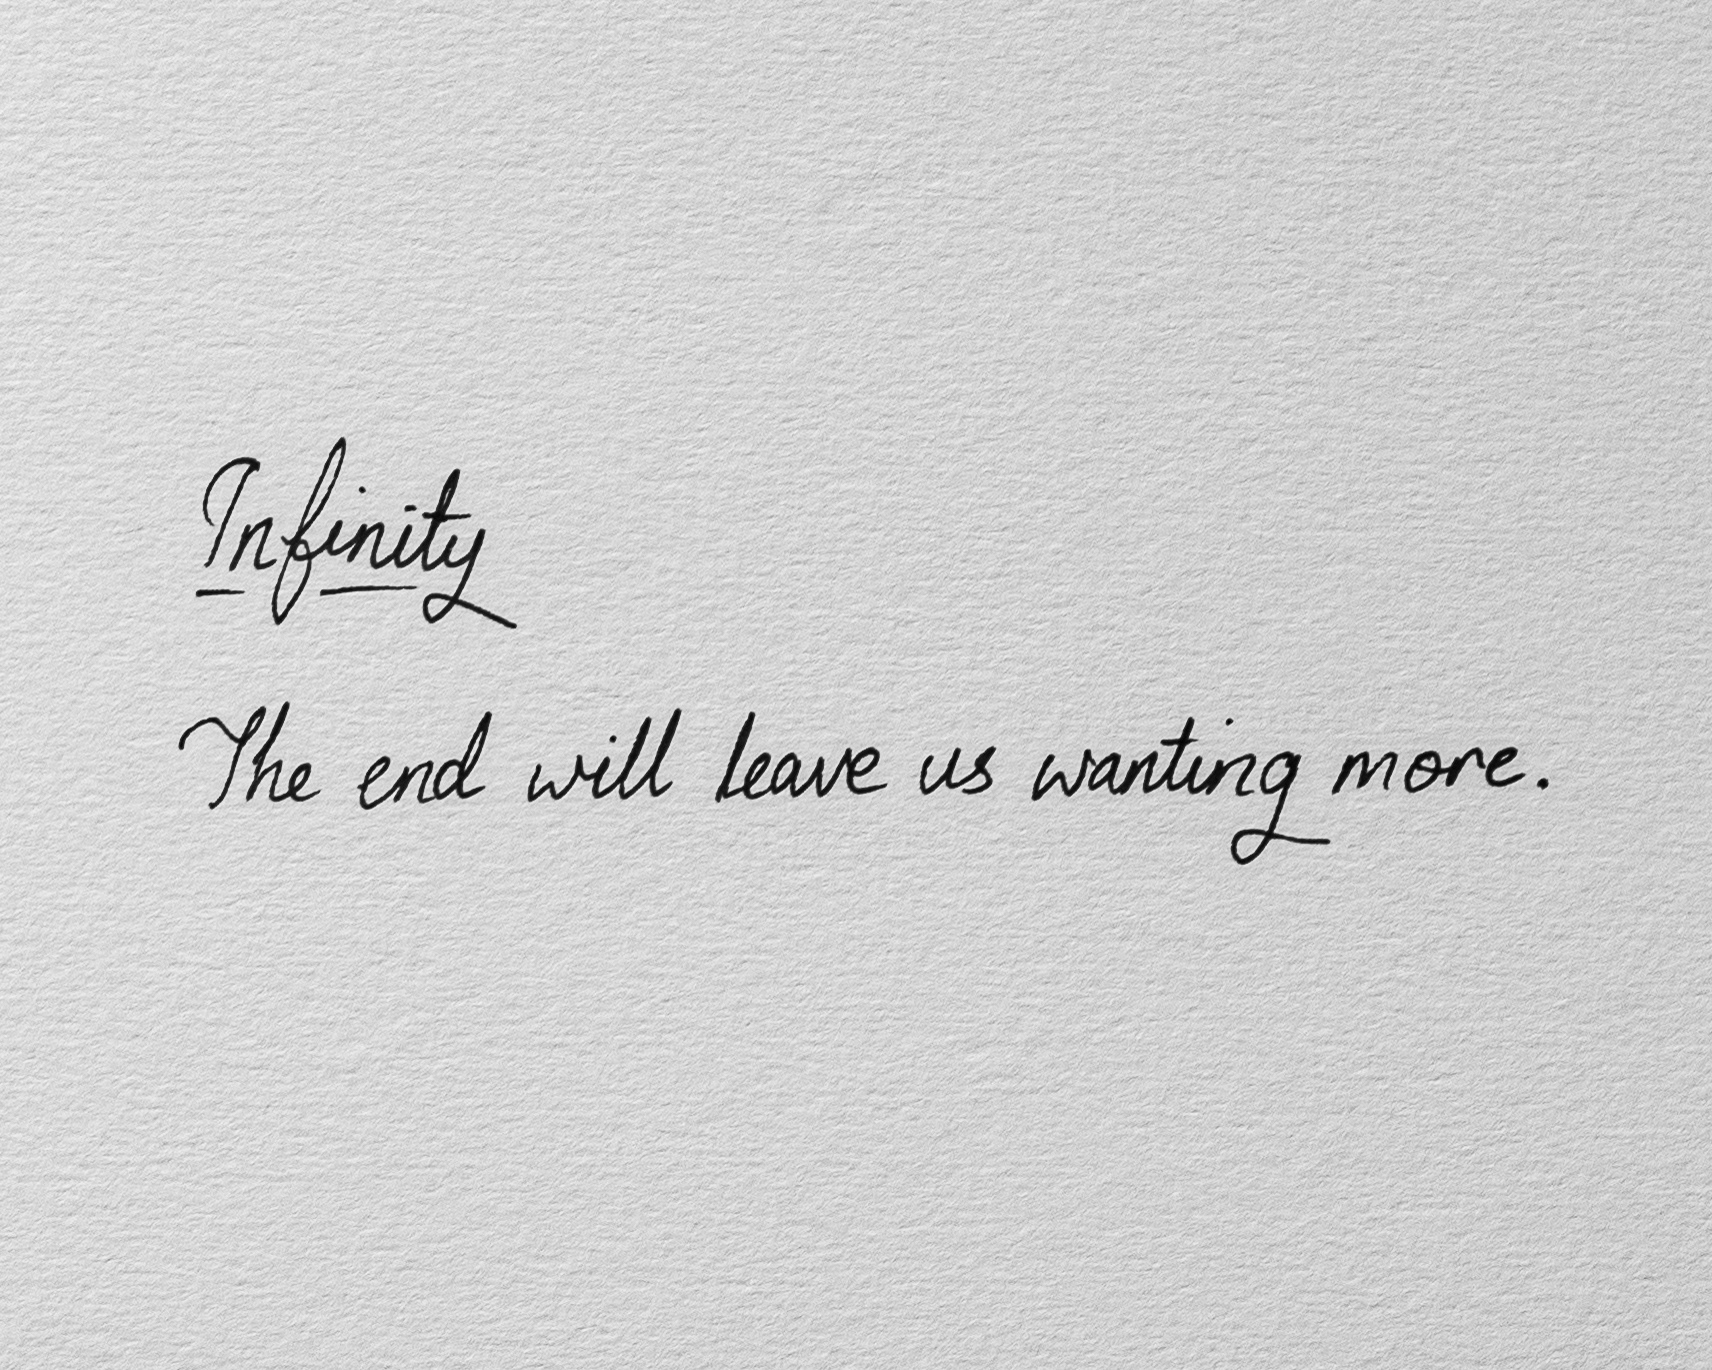 Infinity
The end will leave us wanting more.